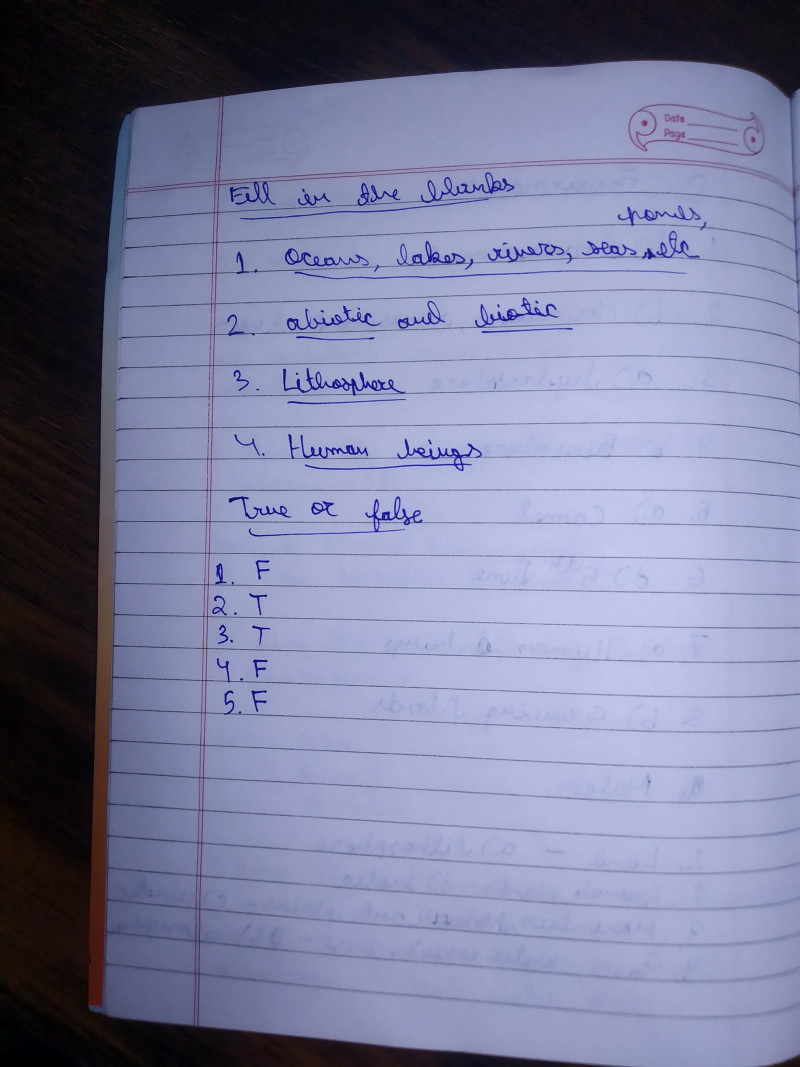 Date
Page
Fill in the blanks
ponds,
1. Oceans, lakes, rivers, seas, etc
2. abiotic and biotic
3. Lithosphere
4. Human beings
True or false
1. F
2. T
3. T
4. F
5. F